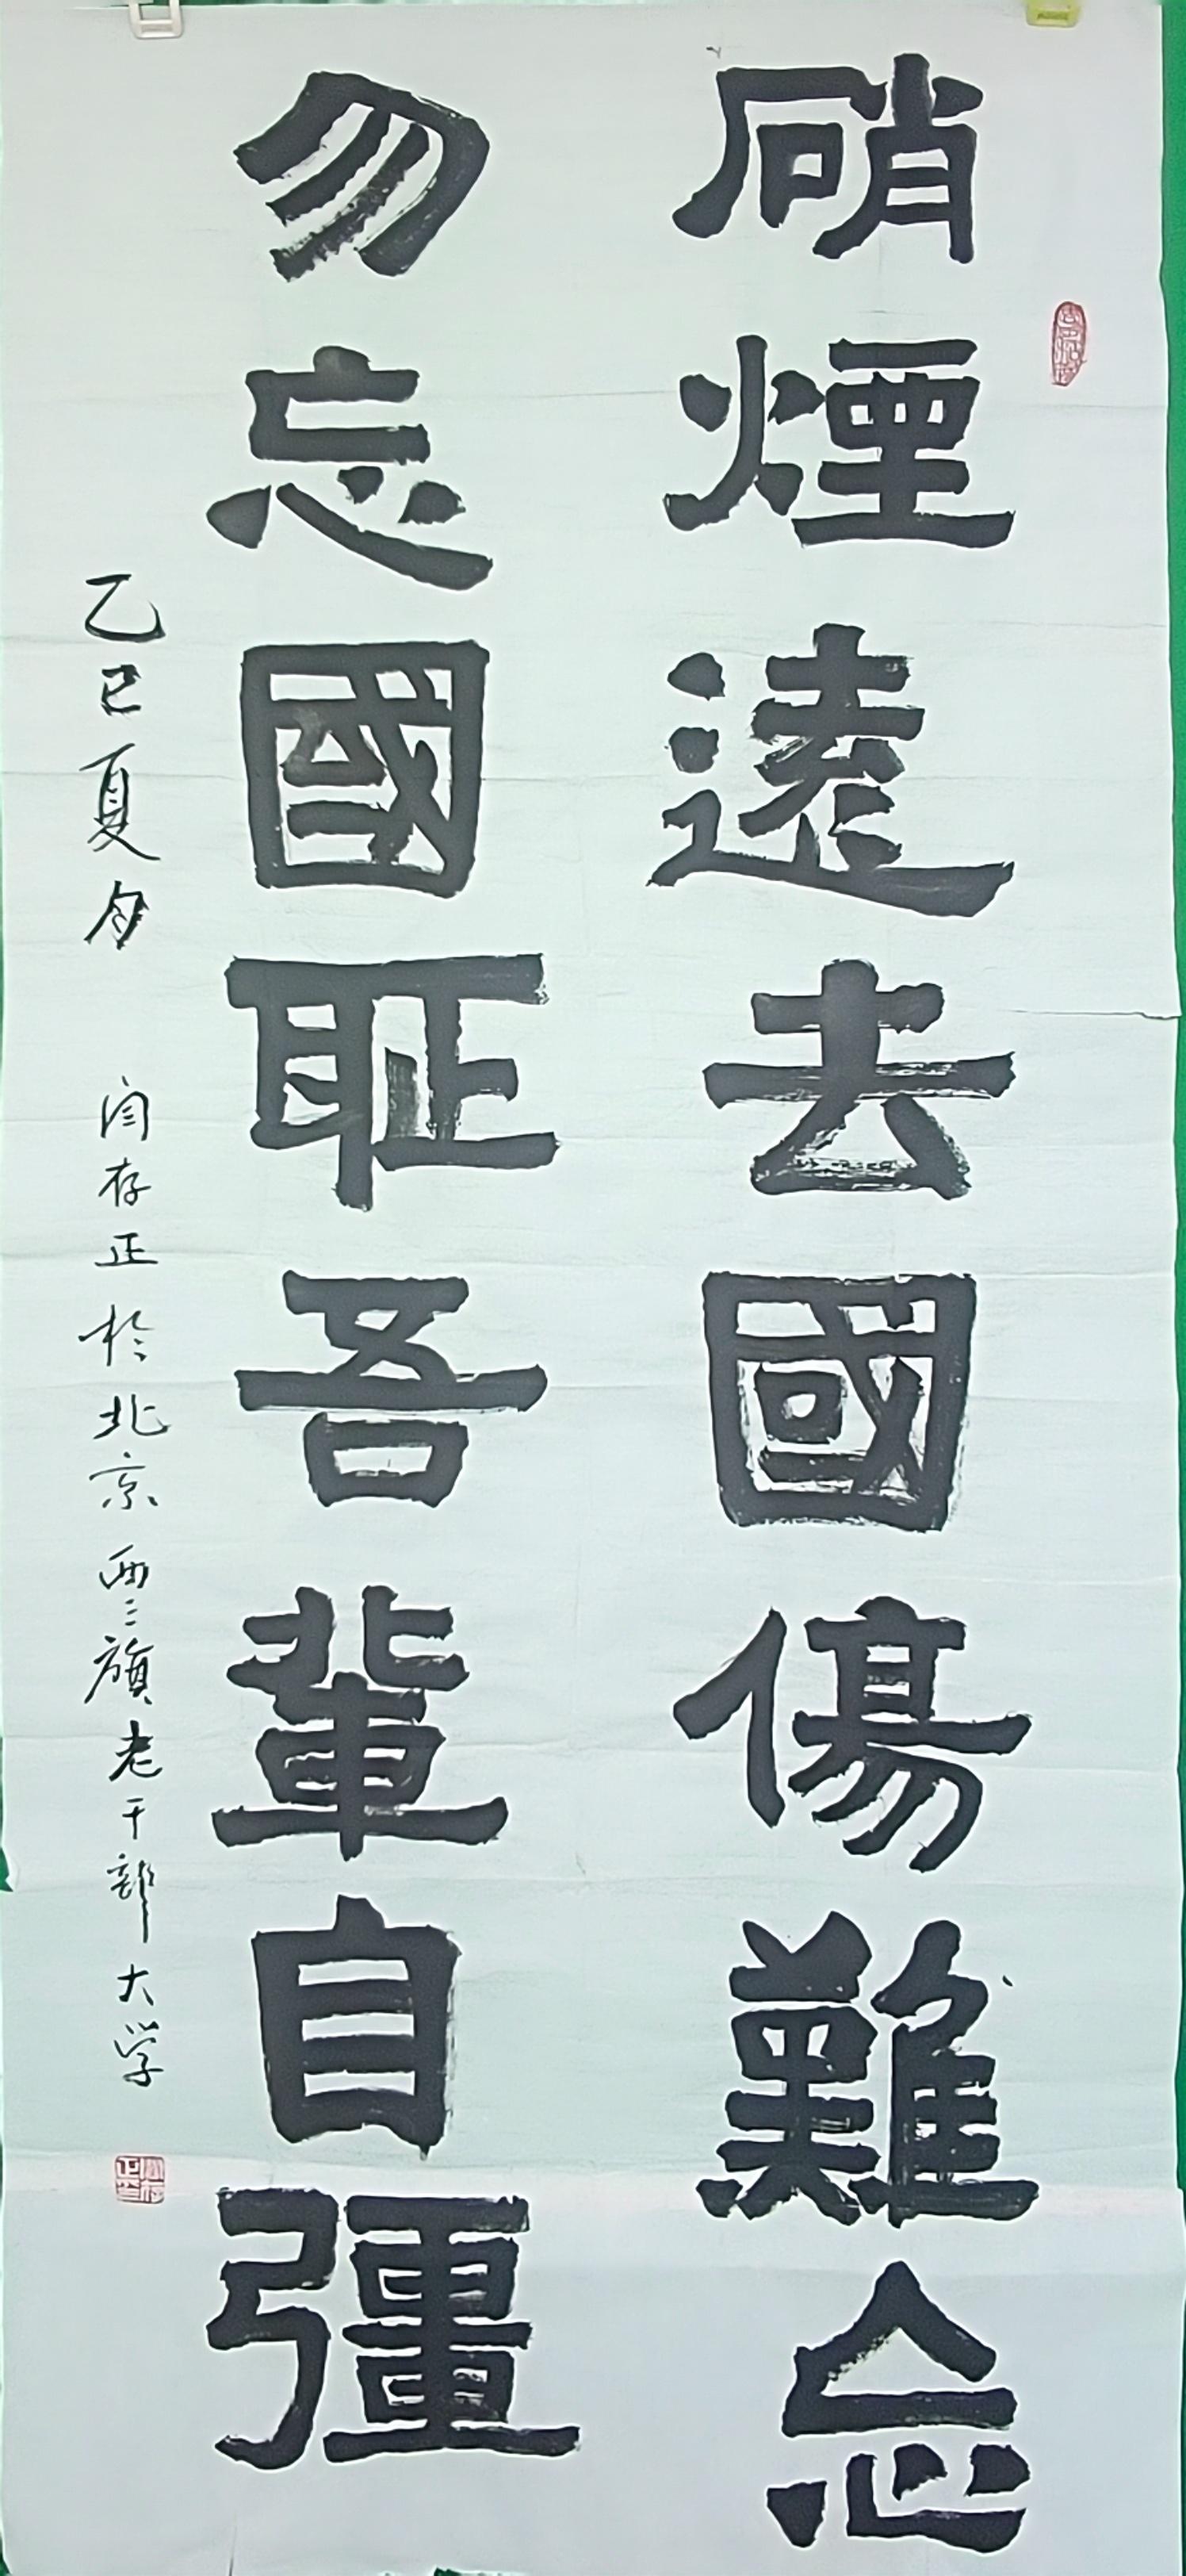 硝煙遠去國傷難忘
勿忘國耻吾輩自彊
乙巳夏月 闫存正於北京西二旗老干部大学